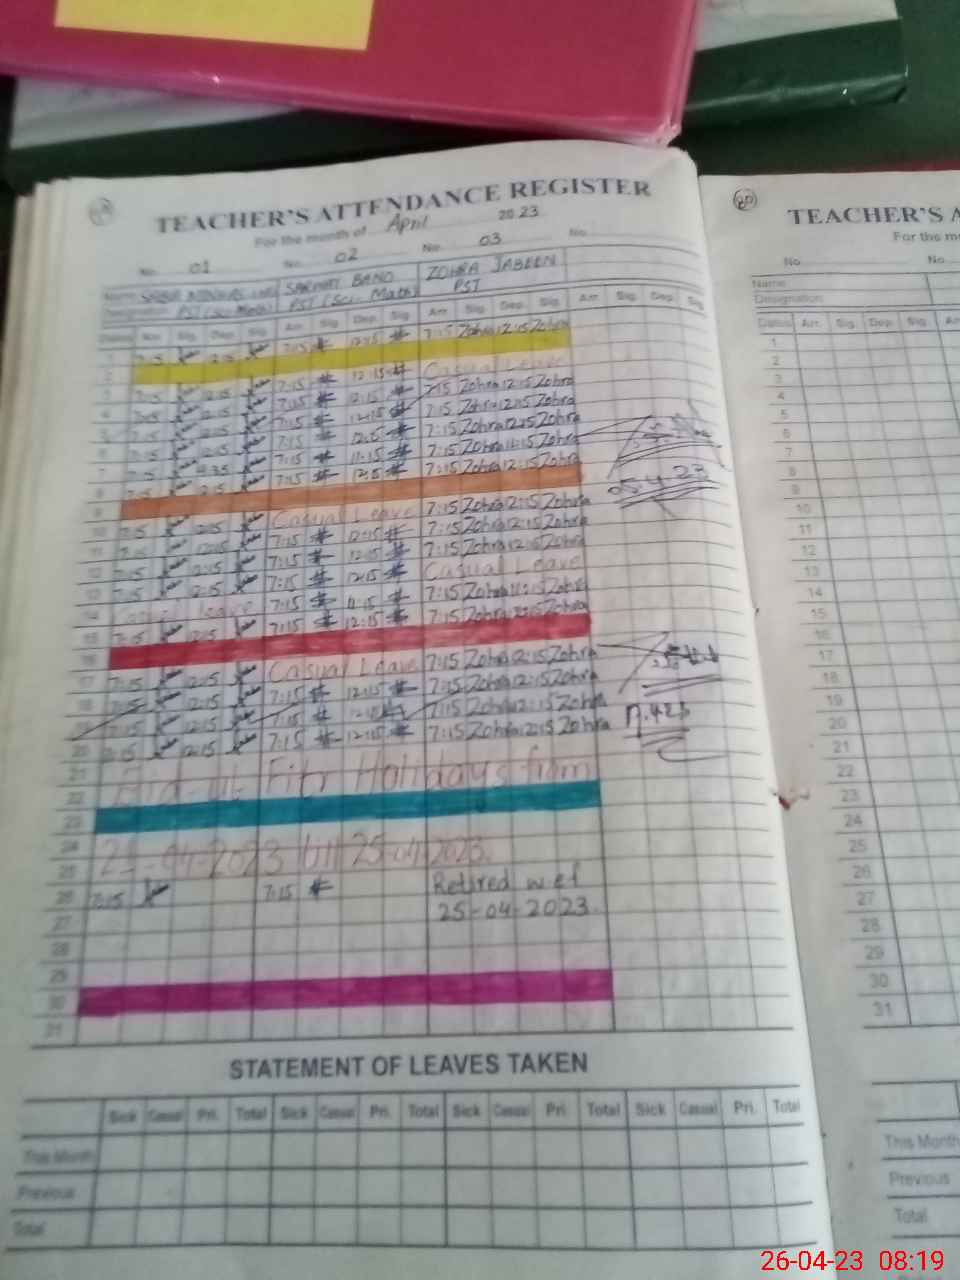 TEACHER'S ATTENDANCE REGISTER
For the month of April 2023
No. 01 No. 02 No. 03 No.
Name SARWAT BANO ZOHRA JABEEN
Designation PST (Sc. Math) PST (Sc. Math) PST
Dates Arr. Sig. Dep. Sig. Arr. Sig. Dep. Sig. Arr. Sig. Dep. Sig.
1 7:15 12:15 7:15 12:15 7:15 Zohra 12:15 Zohra
2
3 7:15 12:15 7:15 12:15 Casual Leave
4 7:15 12:15 7:15 12:15 7:15 Zohra 12:15 Zohra
5 7:15 12:15 7:15 12:15 7:15 Zohra 12:15 Zohra
6 7:15 12:15 7:15 12:15 7:15 Zohra 12:15 Zohra
7 7:15 7:15 11:15 7:15 Zohra 11:15 Zohra
8 7:15 12:15 7:15 12:15 7:15 Zohra 12:15 Zohra
05.4.23
9
10 7:15 12:15 Casual Leave 7:15 Zohra 12:15 Zohra
11 7:15 12:15 7:15 12:15 7:15 Zohra 12:15 Zohra
12 7:15 12:15 7:15 12:15 7:15 Zohra 12:15 Zohra
13 7:15 12:15 7:15 12:15 Casual Leave
14 Casual leave 7:15 11:15 7:15 Zohra 11:15 Zohra
15 7:15 12:15 7:15 12:15 7:15 Zohra 12:15 Zohra
16
17 7:15 12:15 Casual Leave 7:15 Zohra 12:15 Zohra
18 7:15 12:15 7:15 12:15 7:15 Zohra 12:15 Zohra
19 7:15 12:15 7:15 12:15 7:15 Zohra 12:15 Zohra
20 7:15 12:15 7:15 12:15 7:15 Zohra 12:15 Zohra
21 Eid-ul-Fitr Holidays from
22
23
24 21-04-2023 till 25-04-2023.
25
26 7:15 7:15 Retired w.e.f
27 25-04-2023.
28
29
30
31
STATEMENT OF LEAVES TAKEN
Sick Casual Pri. Total Sick Casual Pri. Total Sick Casual Pri. Total Sick Casual Pri. Total
This Month
Previous
Total
80
TEACHER'S A
For the m
No. No.
Name
Designation
Dates Arr. Sig. Dep. Sig. Ar
1
2
3
4
5
6
7
8
9
10
11
12
13
14
15
16
17
18
19
20
21
22
23
24
25
26
27
28
29
30
31
This Month
Previous
Total
26-04-23 08:19